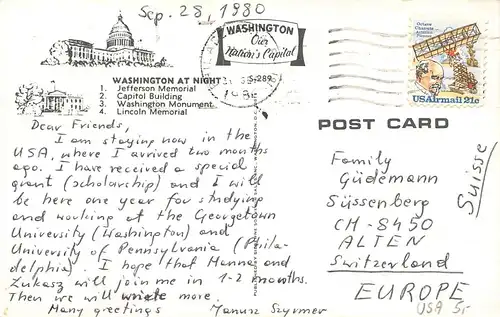 Sep. 28, 1980
WASHINGTON
Our
Nation's Capital
WASHINGTON AT NIGHT
1. Jefferson Memorial
2. Capitol Building
3. Washington Monument
4. Lincoln Memorial
USAirmail 21c
POST CARD
Dear Friends,
I am staying now in the
USA, where I arrived two months
ago. I have received a special
grant (scholarship) and I will
be here one year for studying
and working at the Georgetown
University (Washington) and
University of Pennsylvania (Phila-
delphia). I hope that Hanna and
Łukasz will join me in 1-2 months.
Then we will write more.
Many greetings Janusz Szyrmer
Family
Güdemann
Süssenberg
CH-8450
ALTEN
Switzerland
EUROPE
Suisse
USA 5.-